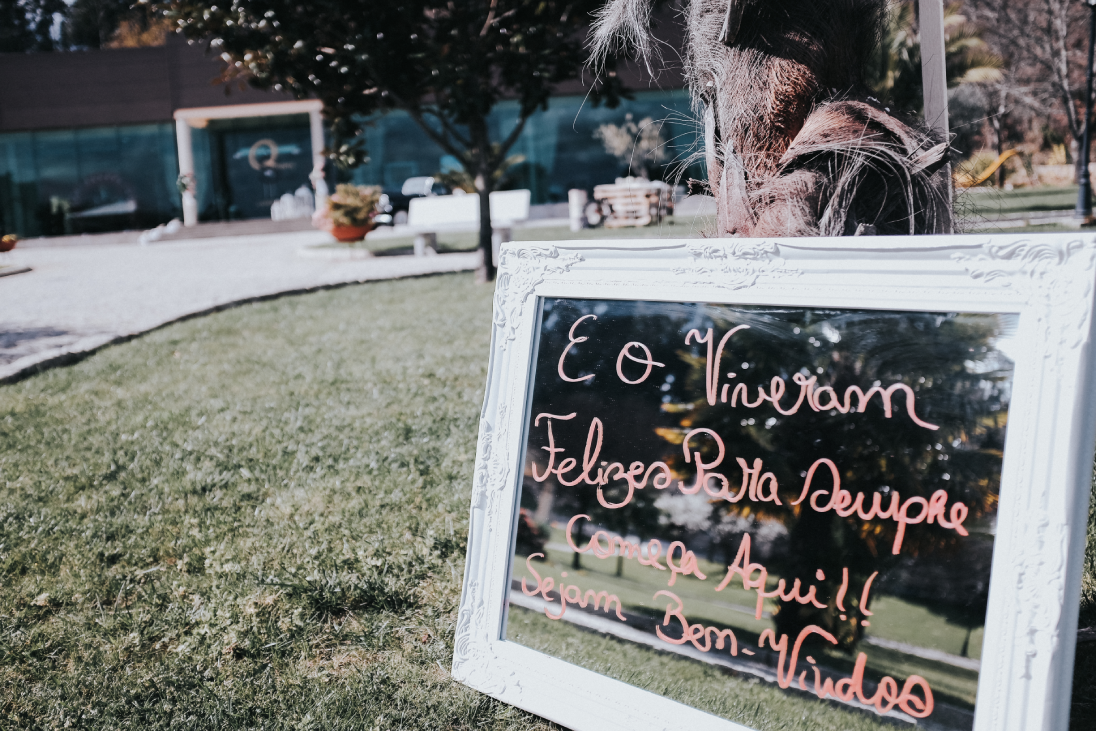 E O Viveram
Felizes Para Sempre
Começa Aqui!!
Sejam Bem-Vindos